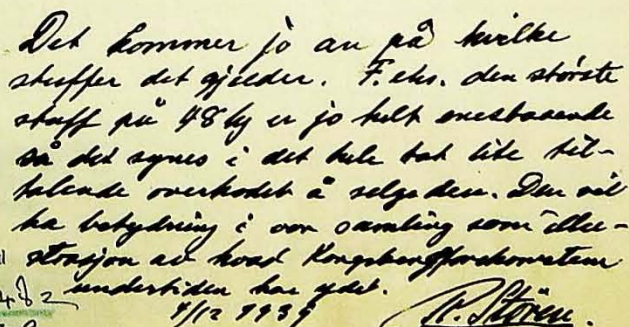 Det kommer jo an på hvilke
stuffer det gjelder. F.eks. den største
stuff på 48 kg er jo helt enestaaende
så det synes i det hele tat lite til-
talende overhodet å selge den. Den vil
ha betydning i vor samling som illu-
strasjon av hvad Kongsbergforekomstene
undertiden har ydet.
482
9/12 1939
R. Stören.